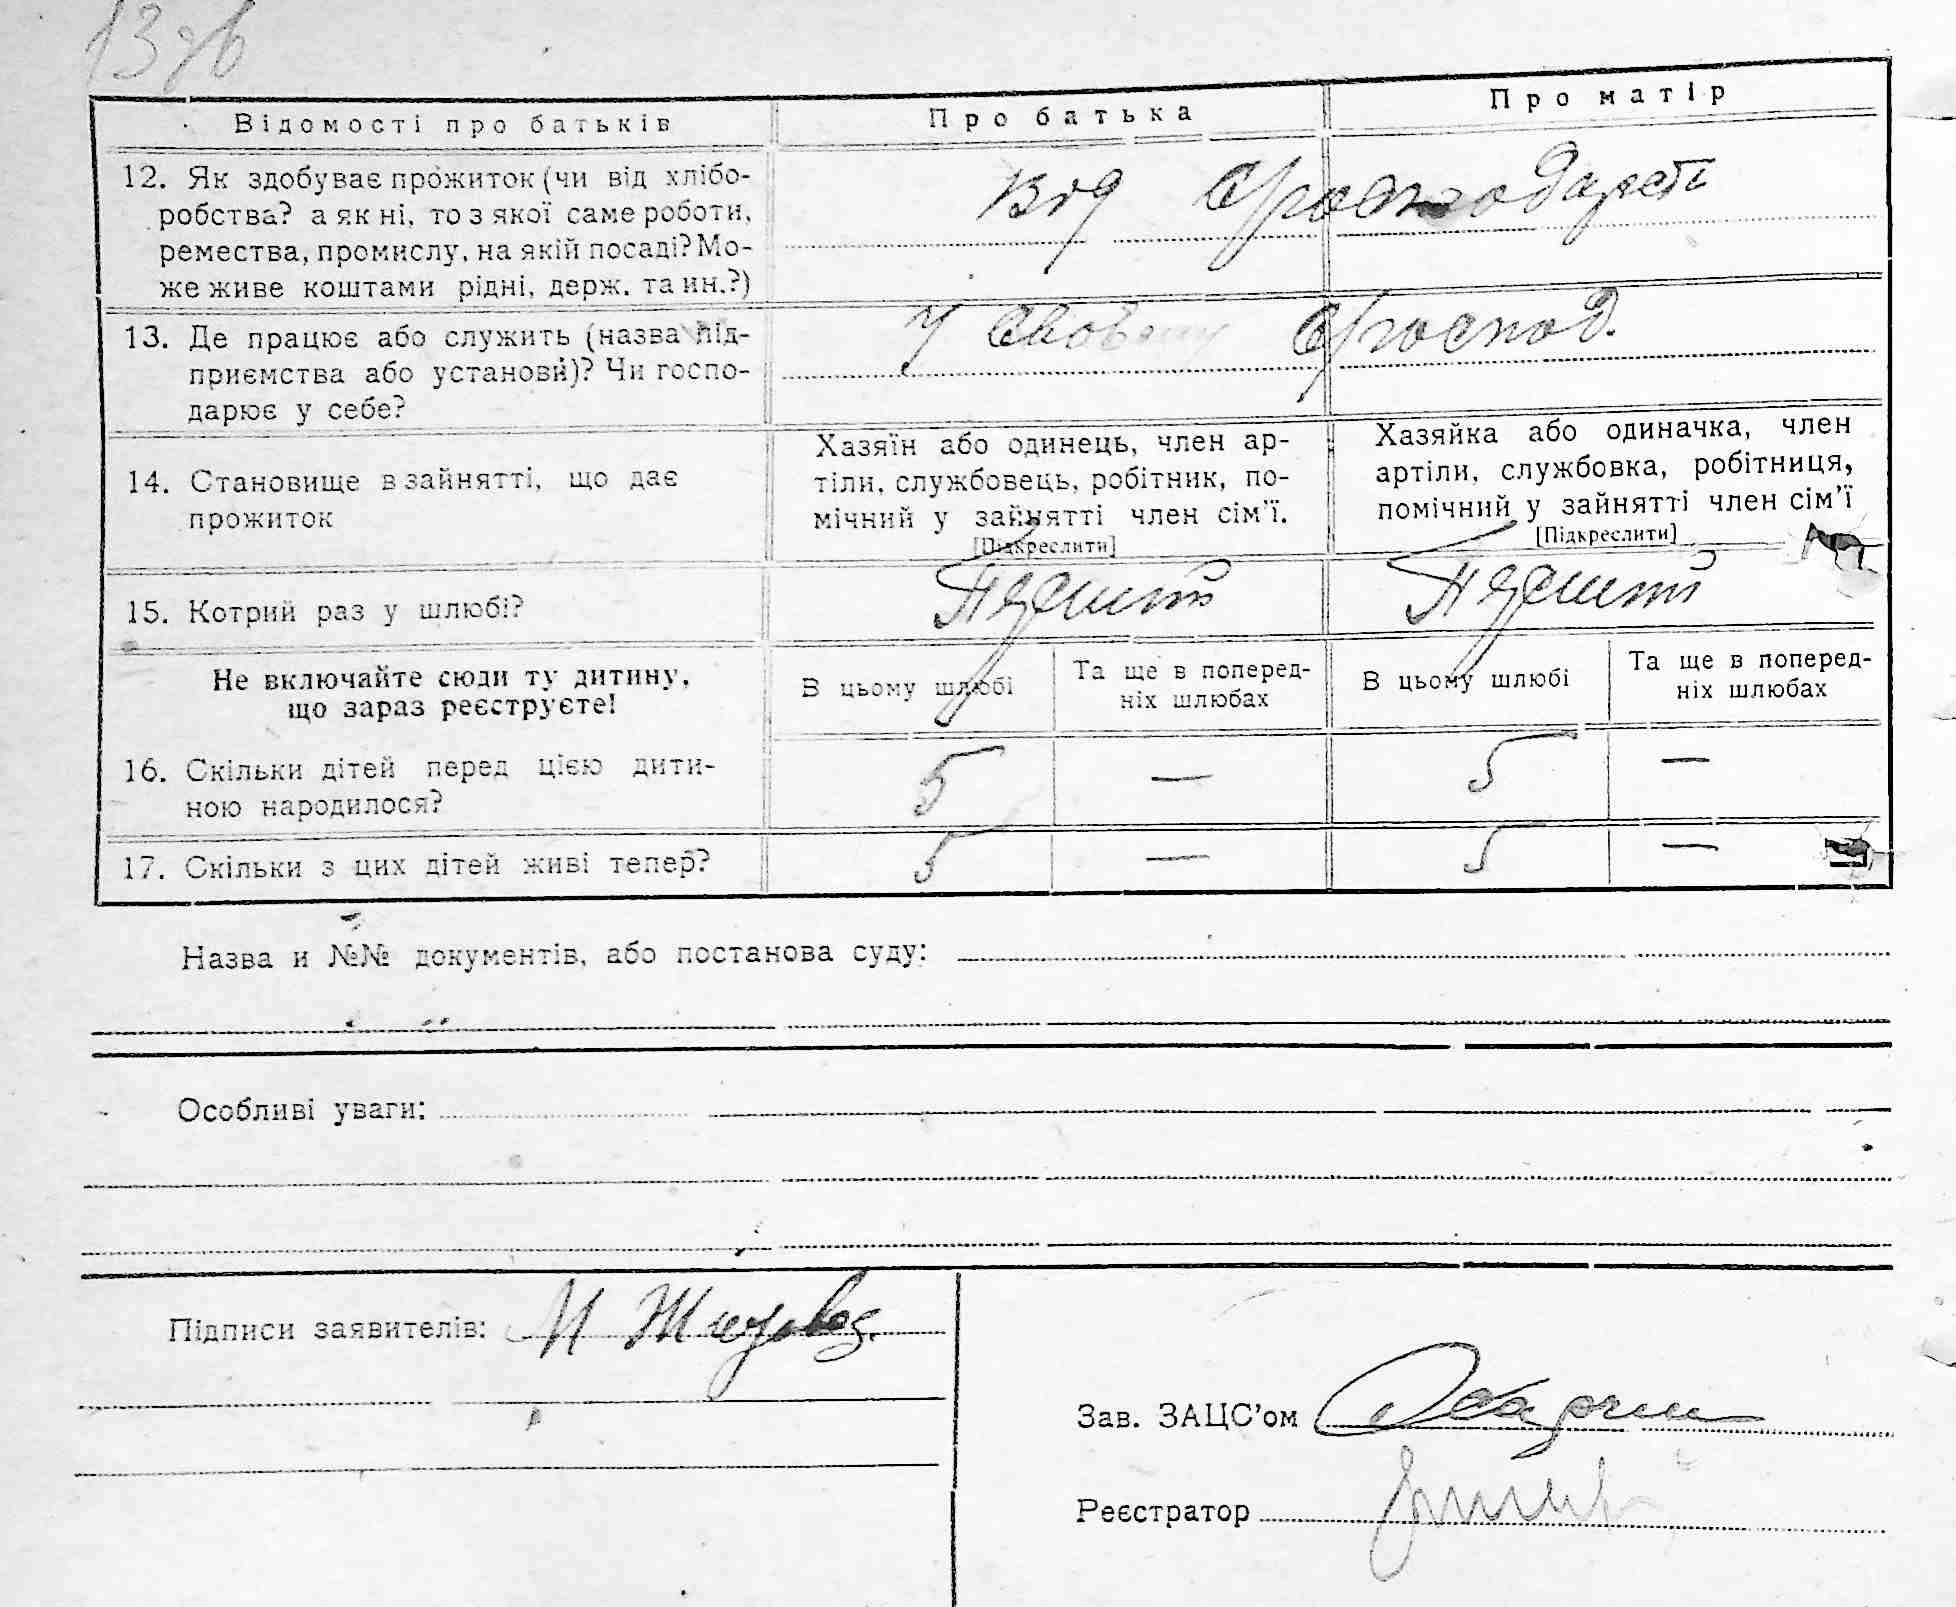 13 зв
Відомості про батьків
Про батька
Про матір
12. Як здобуває прожиток (чи від хлібо-
робства? а як ні, то з якої саме роботи,
ремества, промислу, на якій посаді? Мо-
же живе коштами рідні, держ. та ин.?)
Від господарств
13. Де працює або служить (назва під-
приємства або установи)? Чи госпо-
дарює у себе?
У своєму господ.
14. Становище в зайнятті, що дає
прожиток
Хазяїн або одинець, член ар-
тіли, службовець, робітник, по-
мічний у зайнятті член сім'ї.
[Підкреслити]
Хазяйка або одиначка, член
артіли, службовка, робітниця,
помічний у зайнятті член сім'ї
[Підкреслити]
15. Котрий раз у шлюбі?
Перший
Перший
Не включайте сюди ту дитину,
що зараз реєструєте!
В цьому шлюбі
Та ще в поперед-
ніх шлюбах
В цьому шлюбі
Та ще в поперед-
ніх шлюбах
16. Скільки дітей перед цією дити-
ною народилося?
5 — 5 —
17. Скільки з цих дітей живі тепер?
5 — 5 —
Назва и №№ документів, або постанова суду:
Особливі уваги:
Підписи заявителів:
Зав. ЗАЦС'ом
Реєстратор